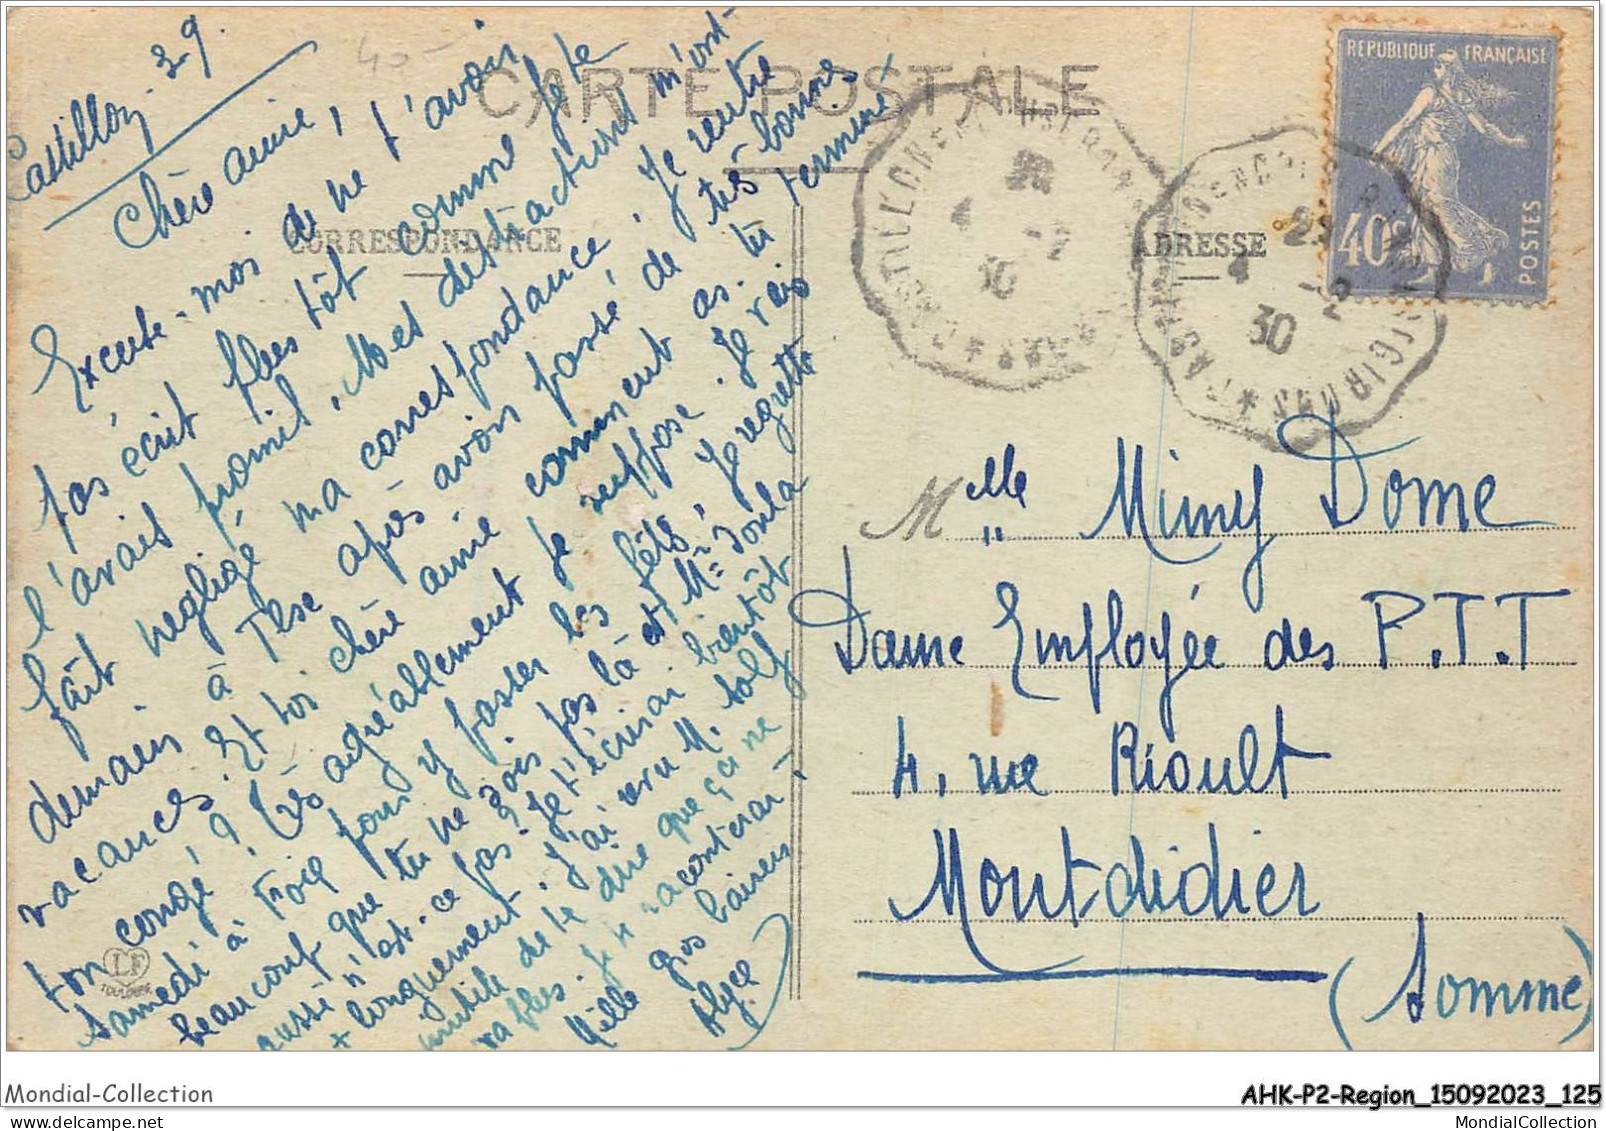 Castillon. 3-9.
40-
CARTE POSTALE
CORRESPONDANCE
ADRESSE
REPUBLIQUE FRANÇAISE
40c
POSTES
Chère amie,
Excuse-moi de ne t'avoir
pas écrit plus tôt comme je te
l'avais promis. Mes distractions m'ont
fait négligé ma correspondance. Je rentre
demain à Tlse après avoir passé de très bonnes
vacances. Et toi chère amie comment as-tu terminé
ton congé? Très agréablement je suppose. Je vais
samedi à Foix pour y passer les fêtes, Je regrette
beaucoup que tu ne sois pas là et Mr
aussi n'est-ce pas. Je t'écrirai bientôt
+ longuement. J'ai revu M.
inutile de te dire que ça ne
va plus. Je te raconterai -
Mille gros baisers
Alyce
LF
TOULOUSE
4
30
4
30
Melle Mimy Dome
Dame Employée des P.T.T
4, rue Rioult
Montdidier
(Somme)
Mondial-Collection
AHK-P2-Region_15092023_125
delcampe.net
MondialCollection